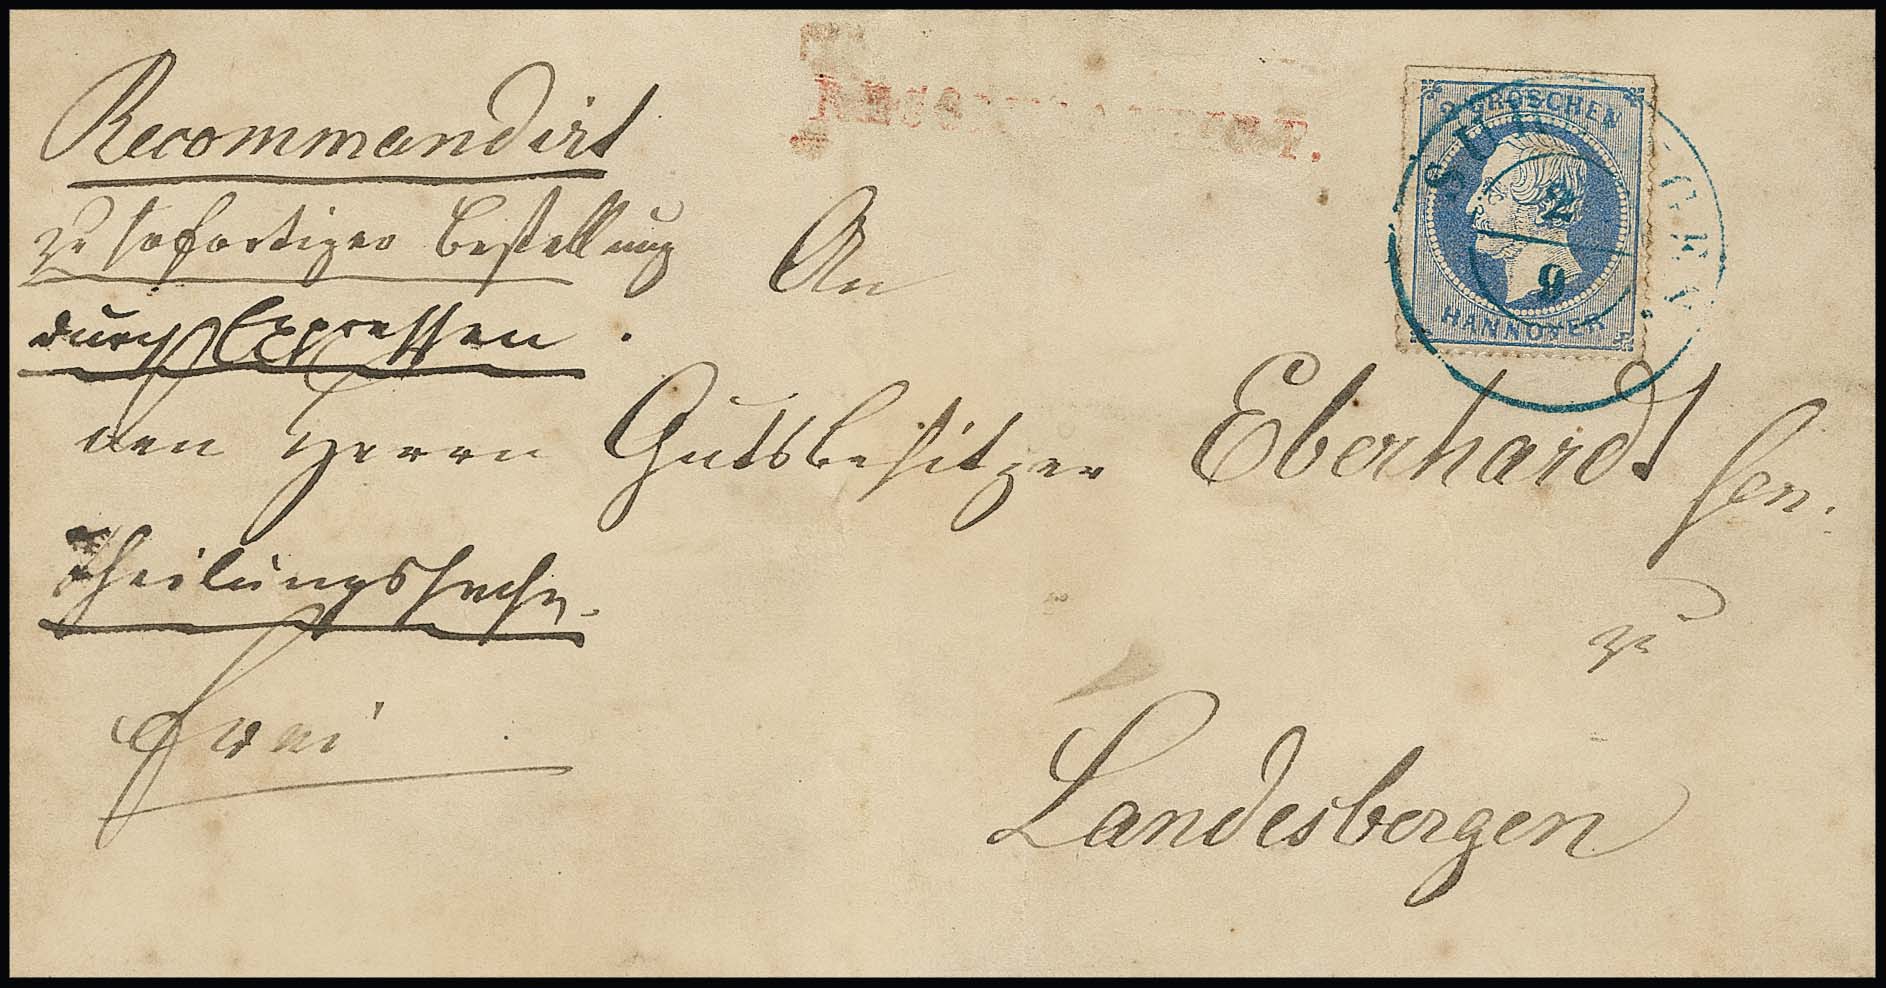 Recommandirt
zu sofortiger Bestellung
durch Expressen.
An
den Herrn Gutsbesitzer Eberhardt Sen.
Theilungssache.
zu
frei
Landesbergen
GROSCHEN
HANNOVER
2
9